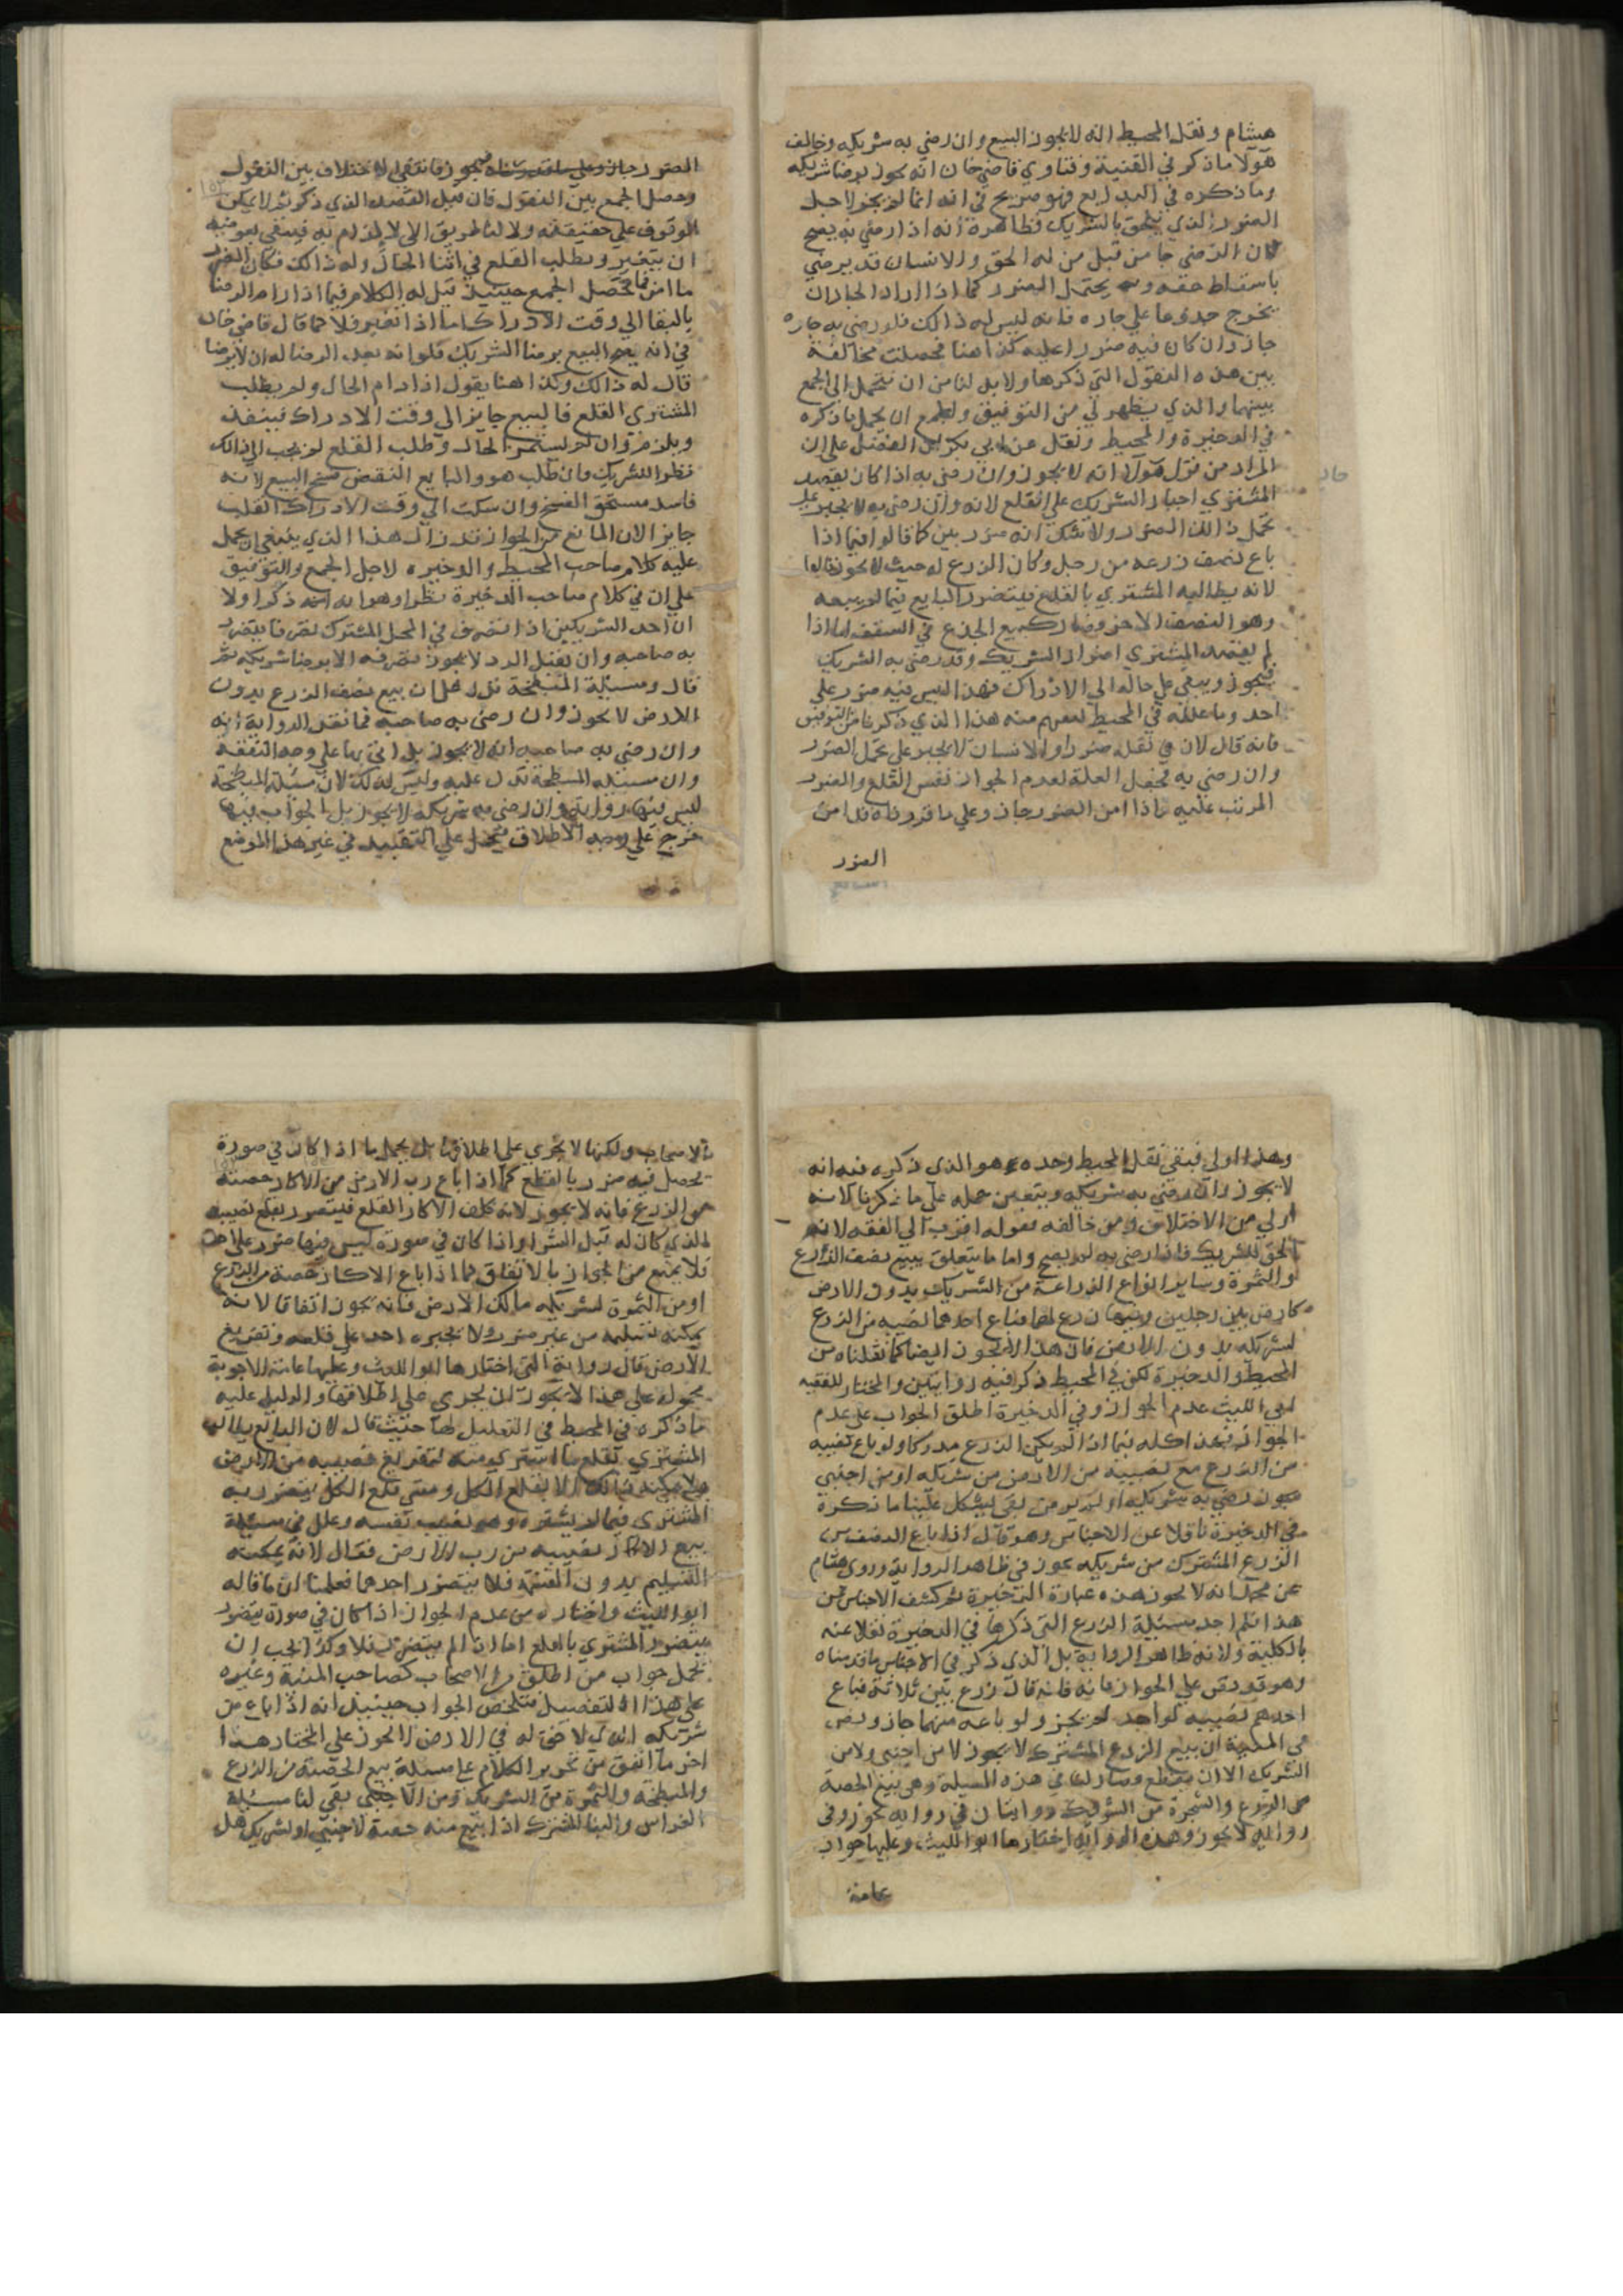 هيشام ونقل المحيط انه لا يجوز البيع وان رضي به شريكه وخالف
هولا ما ذكر في القنية وفتاوي قاضي خان انه يجوز برضا شريكه
وما ذكره في البدايع فهو صريح في انه انما لم يجز لاجل
الضرر الذي يلحق بالشريك فظاهره انه اذا رضي به يصح
لان الرضي جا من قبل من له الحق والانسان قد يرضي
باسقاط حقه وبه يحتمل الضرر كما اذا اراد الجار ان
يخرج جذوعا علي جاره فانه ليس له ذالك فلو رضي به جاره
جاز وان كان فيه ضررا عليه كذا هنا فحصلت مخالفة
بين هذه النقول التي ذكرها ولا بد لنا من ان نتحمل الي الجمع
بينهما والذي يظهر لي من التوفيق والجمع ان يحمل ما ذكره
في الدخيرة والمحيط ونقل عن ابي بكر بن الفضل علي ان
المراد من قول هولا انه لا يجوز وان رضي به اذا كان يقصد
المشتري اجبار الشريك علي القلع لانه وان رضي به لا يجبر علي
تحمل ذالك الضرر ولا شك انه ضرر بين كما قالوا فيما اذا
باع نصف زرعه من رجل وكان الزرع له حيث لا يجوز قالوا
لانه يطالبه المشتري بالقلع فيتضرر البايع فيما لم يبعه
وهو النصف الاخر وصار كبيع الجذع في السقف اما اذا
لم يقصد المشتري اضرار الشريك وقد رضي به الشريك
فيجوز ويبقي علي حاله الي الادراك فهذا ليس فيه ضرر علي
احد وما علله في المحيط يفهم منه هذا الذي ذكرنا من التوفيق
فانه قال لان في نقله ضررا والانسان لا يجبر علي تحمل الضرر
وان رضي به فجعل العلة لعدم الجواز نفس القلع والضرر
المرتب عليه فاذا امن الضرر جاز وعلي ما قررناه قد امن
الضرر
الضرر جاز وعلي ما قررناه فيجوز فانتفي الاختلاف بين النقول
وحصل الجمع بين النقول فان قيل القصد الذي ذكرتم لا يمكن
الوقوف علي حقيقته ولا لنا طريق الي الالزام به فينبغي بعرضية
ان يتغير ويطلب القلع في اثنا الحال وله ذالك فكان الضرر
ما امن فما تحصل الجمع حينيذ قيل له الكلام فيما اذا دام الرضا
بالبقا الي وقت الادراك اما اذا تغير فلا كما قال قاضي خان
في انه يصح البيع برضا الشريك فلو انه بعد الرضا له ان لا يرضا
قال له ذالك وكذا هنا يقول اذا دام الحال ولم يطلب
المشتري القلع فالبيع جايز الي وقت الادراك فينفذ
ويلزم وان لم يستمر الحال وطلب القلع لم يجب الي ذالك
نظرا للشريك فان طلب هو والبايع النقض فسخ البيع لانه
فاسد مستحق الفسخ وان سكت الي وقت الادراك انقلب
جايزا لان المانع من الجواز قد زال هذا الذي ينبغي ان يحمل
عليه كلام صاحب المحيط والدخيره لاجل الجمع والتوفيق
علي ان في كلام صاحب الدخيرة نظرا وهو انه ذكر اولا
ان احد الشريكين اذا تصرف في المحل المشترك تصرفا يتضرر
به صاحبه وان يقبل الرد لا يجوز تصرفه الا برضا شريكه ثم
قال ومسئلة المبطخة تدل علي ان بيع نصف الزرع بدون
الارض لا يجوز وان رضي به صاحبه فما نقل الرواية انه
وان رضي به صاحبه انه لا يجوز بل اتي بها علي وجه التفقه
وان مسئلة المبطخة تدل عليه وليس كذلك لان مسئلة المبطخة
ليس فيها رواية وان رضي به شريكه لا يجوز بل الجواب فيها
خرج علي وجه الاطلاق فيحمل علي التقييد في غير هذا الموضع
وهذا اولي فبقي نقل المحيط وحده وهو الذي ذكره فيه انه
لا يجوز وان رضي به شريكه ويتعين حمله علي ما ذكرنا لانه
اولي من الاختلاف ومن خالفه فقوله اقرب الي الفقه لانه
الحق للشريك فاذا رضي به لم يصح واما ما يتعلق ببيع نصف الزرع
والثمرة وساير انواع الزراعة من الشريك بدون الارض
كارض بين رجلين وفيها زرع لهما فباع احدهما نصيبه من الزرع
لشريكه بدون الارض فان هذا لا يجوز ايضا كما نقلناه من
المحيط والدخيرة لكن في المحيط ذكر فيه روايتين والمختار للفقيه
ابي الليث عدم الجواز وفي الدخيرة اطلق الجواب علي عدم
الجواز فهذا كله فيما اذا لم يكن الزرع مدركا ولو باع نصيبه
من الزرع مع نصيبه من الارض من شريكه او من اجنبي
يجوز رضي به شريكه او لم يرض بقي يشكل علينا ما ذكره
في الدخيرة ناقلا عن الاجناس وهو قال اذا باع النصف من
الزرع المشترك من شريكه يجوز في ظاهر الرواية وروي هشام
عن محمد انه لا يجوز هذه عبارة الدخيرة ثم كشفت الاجناس عن
هذا فلم اجد مسئلة الزرع التي ذكرها في الدخيرة نقلا عنه
بالكلية ولا انه ظاهر الرواية بل الذي ذكر في الاجناس ما قدمناه
وهو قد دل علي الجواز فانه قال زرع بين ثلاثة فباع
احدهم نصيبه لواحد لم يجز ولو باعه منهما جاز ونص
في المنية ان بيع الزرع المشترك لا يجوز لا من اجنبي ولا من
الشريك الا ان يقطع وصار لنا في هذه المسيلة وهي بيع الحصة
من الزرع والشجرة من الشريك روايتان في رواية يجوز وفي
رواية لا يجوز وهذه الرواية اختارها ابو الليث وعليها جواب
عامة
الاصحاب ولكنها لا تجري علي اطلاقها بل يحمل ما اذا كان في صورة
يحصل فيه ضرر بالقطع كما اذا باع رب الارض من الاكار حصته
من الزرع فانه لا يجوز لانه يكلف الاكار القلع فيتضرر بقلع نصيبه
الذي كان له قبل الشرا واذا كان في صورة ليس فيها ضرر علي احد
فلا يمنع من الجواز بالاتفاق كما اذا باع الاكار حصته من الزرع
او من الثمرة لشريكه مالك الارض فانه يجوز اتفاقا لانه
يمكنه تسليمه من غير ضرر ولا يجبره احد علي قلعه وتفريغ
الارض قال رواية التي اختارها ابو الليث وعليها عامة الاجوبة
محمولة علي هذا لا يجوز ان يجري علي اطلاقها والدليل عليه
ما ذكره في المحيط في التعليل لها حيث قال لان البايع يطالب
المشتري بقلع ما اشتري منه لتفريغ نصيبه من الارض
ولا يمكنه ذالك الا بقلع الكل ومتي قلع الكل يتضرر به
المشتري فيما لم يشتره وهو نصيب نفسه وعلل في مسئلة
بيع الاكار نصيبه من رب الارض فقال لانه يمكنه
التسليم بدون القسمة فلا يتضرر احدهما فعلمنا ان ما قاله
ابو الليث واختاره من عدم الجواز اذا كان في صورة يتضرر
يتضرر المشتري بالقلع اما اذا لم يتضرر فلا وكذا يجب ان
يحمل جواب من اطلق من الاصحاب كصاحب المنية وغيره
علي هذا التفصيل فتلخص الجواب حينيذ انه اذا باع من
شريكه الذي لا حق له في الارض لا يجوز علي المختار هذا
اخر ما اتفق من تحرير الكلام علي مسئلة بيع الحصة من الزرع
والمبطخة والثمرة من الشريك ومن الاجنبي بقي لنا مسئلة
الغراس والبنا المشترك اذا بيع منه حصة لاجنبي او لشريك هل